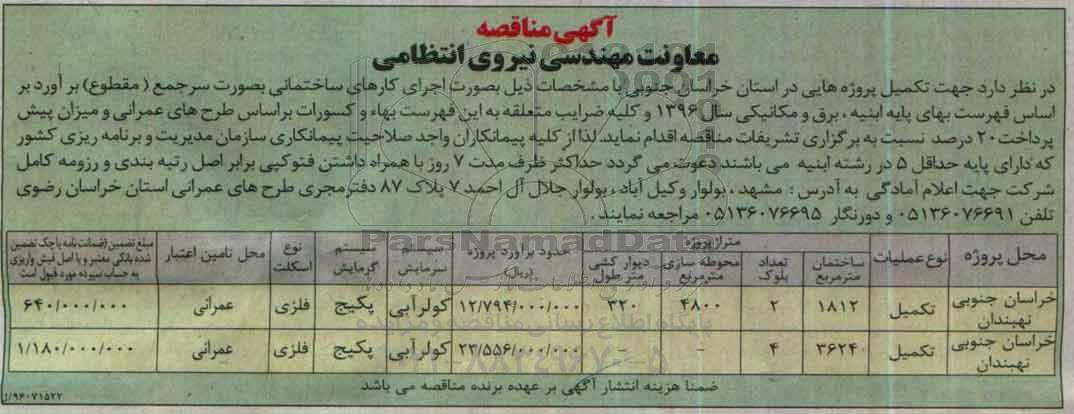 آگهی مناقصه
معاونت مهندسی نیروی انتظامی
در نظر دارد جهت تکمیل پروژه هایی در استان خراسان جنوبی با مشخصات ذیل بصورت اجرای کارهای ساختمانی بصورت سرجمع ( مقطوع) بر آورد بر
اساس فهرست بهای پایه ابنیه ، برق و مکانیکی سال ۱۳۹۶ و کلیه ضرایب متعلقه به این فهرست بهاء و کسورات براساس طرح های عمرانی و میزان پیش
پرداخت ۲۰ درصد نسبت به برگزاری تشریفات مناقصه اقدام نماید. لذا از کلیه پیمانکاران واجد صلاحیت پیمانکاری سازمان مدیریت و برنامه ریزی کشور
که دارای پایه حداقل ۵ در رشته ابنیه می باشند دعوت می گردد حداکثر ظرف مدت ۷ روز با همراه داشتن فتوکپی برابر اصل رتبه بندی و رزومه کامل
شرکت جهت اعلام آمادگی به آدرس : مشهد ، بولوار وکیل آباد ، بولوار جلال آل احمد ۷ پلاک ۸۷ دفترمجری طرح های عمرانی استان خراسان رضوی
تلفن ۰۵۱۳۶۰۷۶۶۹۱ و دورنگار ۰۵۱۳۶۰۷۶۶۹۵ مراجعه نمایند .
محل پروژه نوع عملیات متراژ پروژه ساختمان مترمربع تعداد بلوک محوطه سازی مترمربع دیوار کشی متر طول حدود برآورد پروژه (ریال) سیستم سرمایش سیستم گرمایش نوع اسکلت محل تامین اعتبار مبلغ تضمین (ضمانت نامه یا چک تضمین شده بانکی معتبر و یا اصل فیش واریزی به حساب سپرده مورد قبول است
خراسان جنوبی نهبندان تکمیل ۱۸۱۲ ۲ ۴۸۰۰ ۳۲۰ ۱۲/۷۹۴/۰۰۰/۰۰۰ کولر آبی پکیج فلزی عمرانی ۶۴۰/۰۰۰/۰۰۰
خراسان جنوبی نهبندان تکمیل ۳۶۲۴ ۴ - - ۲۳/۵۵۶/۰۰۰/۰۰۰ کولر آبی پکیج فلزی عمرانی ۱/۱۸۰/۰۰۰/۰۰۰
ضمنا هزینه انتشار آگهی بر عهده برنده مناقصه می باشد
۹۶۰۷۱۵۲۲/
ParsNamadData